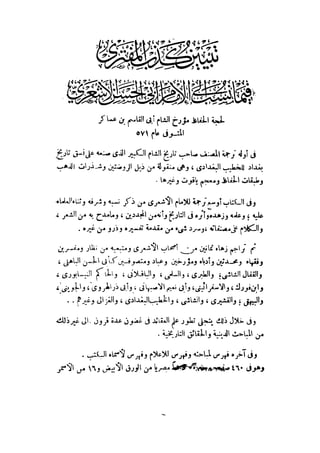 تبيين كذب المفترى
فيما نسب إلى الإمام أبي الحسن الأشعري
لحجة الحفاظ مؤرخ الشام أبى القاسم بن عساكر
المتوفى عام ٥٧١
فى أوله ترجمة المصنف صاحب تاريخ الشام الكبير الذى صنعه على نسق تاريخ
بغداد للخطيب البغدادى ، وهى منقولة من ذيل الروضتين وشذرات الذهب
وطبقات الحفاظ ومعجم ياقوت وغيرها .
وفى الكتاب أوسع ترجمة للإمام الأشعرى من ذكر نسبه وشرفه وثناء العلماء
عليه وعلمه وزهده وأثره فى التاريخ وأنه من المجددين ، ومامدح به من الشعر ،
والكلام على مصنفاته ، وسرد شىء من مقدمة تفسيره وذرو من غيره .
ثم تراجم زهاء ثمانين من أصحاب الأشعرى ومتبعيه من نظار ومفسرين
وفقهاء ومحدثين وأدباء ومؤرخين وعباد ومتصوفين كأبى الحسن الباهلى ،
والقفال الشاشى ، والطبرى ، والسلمى ، والباقلانى ، والحاكم النيسابورى ،
وابن فورك ، والاسفرائينى ، وأبى نعيم الاصبهانى ، وأبى ذر الهروى ، والجوينى ،
والبيهقى ، والقشيرى ، والشاشى ، والخطيب البغدادى ، والغزالى وغيرهم . .
وفى خلال ذلك يتجلى تطور علم العقائد فى غضون عدة قرون . الى غير ذلك
من المباحث الدينية والحقائق التاريخية .
وفى آخره فهرس لمباحثه وفهرس للاعلام وفهرس لأسماء الكتب .
وهو فى ٤٦٠ مصريا من الورق الأبيض و١٦ من الاسمر